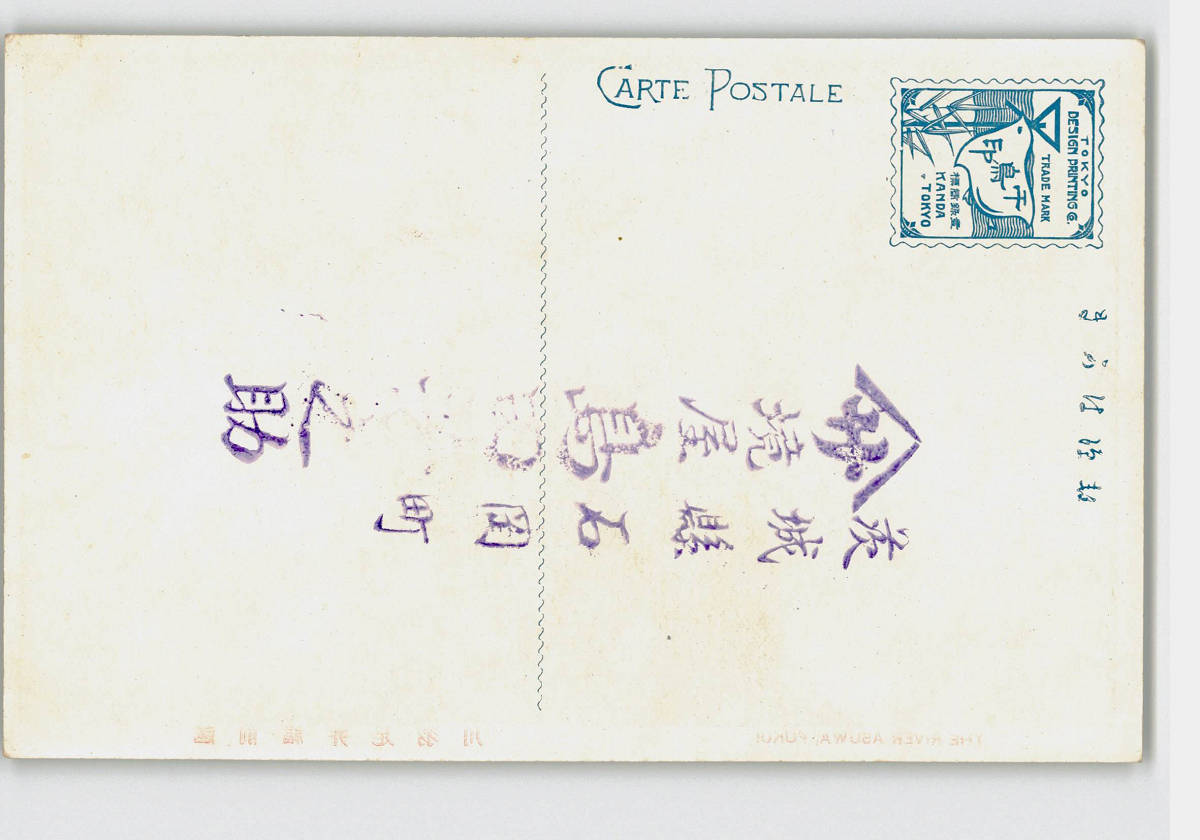 CARTE POSTALE
TOKYO
DESIGN PRINTING Co.
TRADE MARK
千鳥印
標商録登
KANDA
TOKYO
郵便はかき
茨城縣石岡町
境屋島
之助
THE RIVER ASUWA, FUKUI
川羽足井福前越